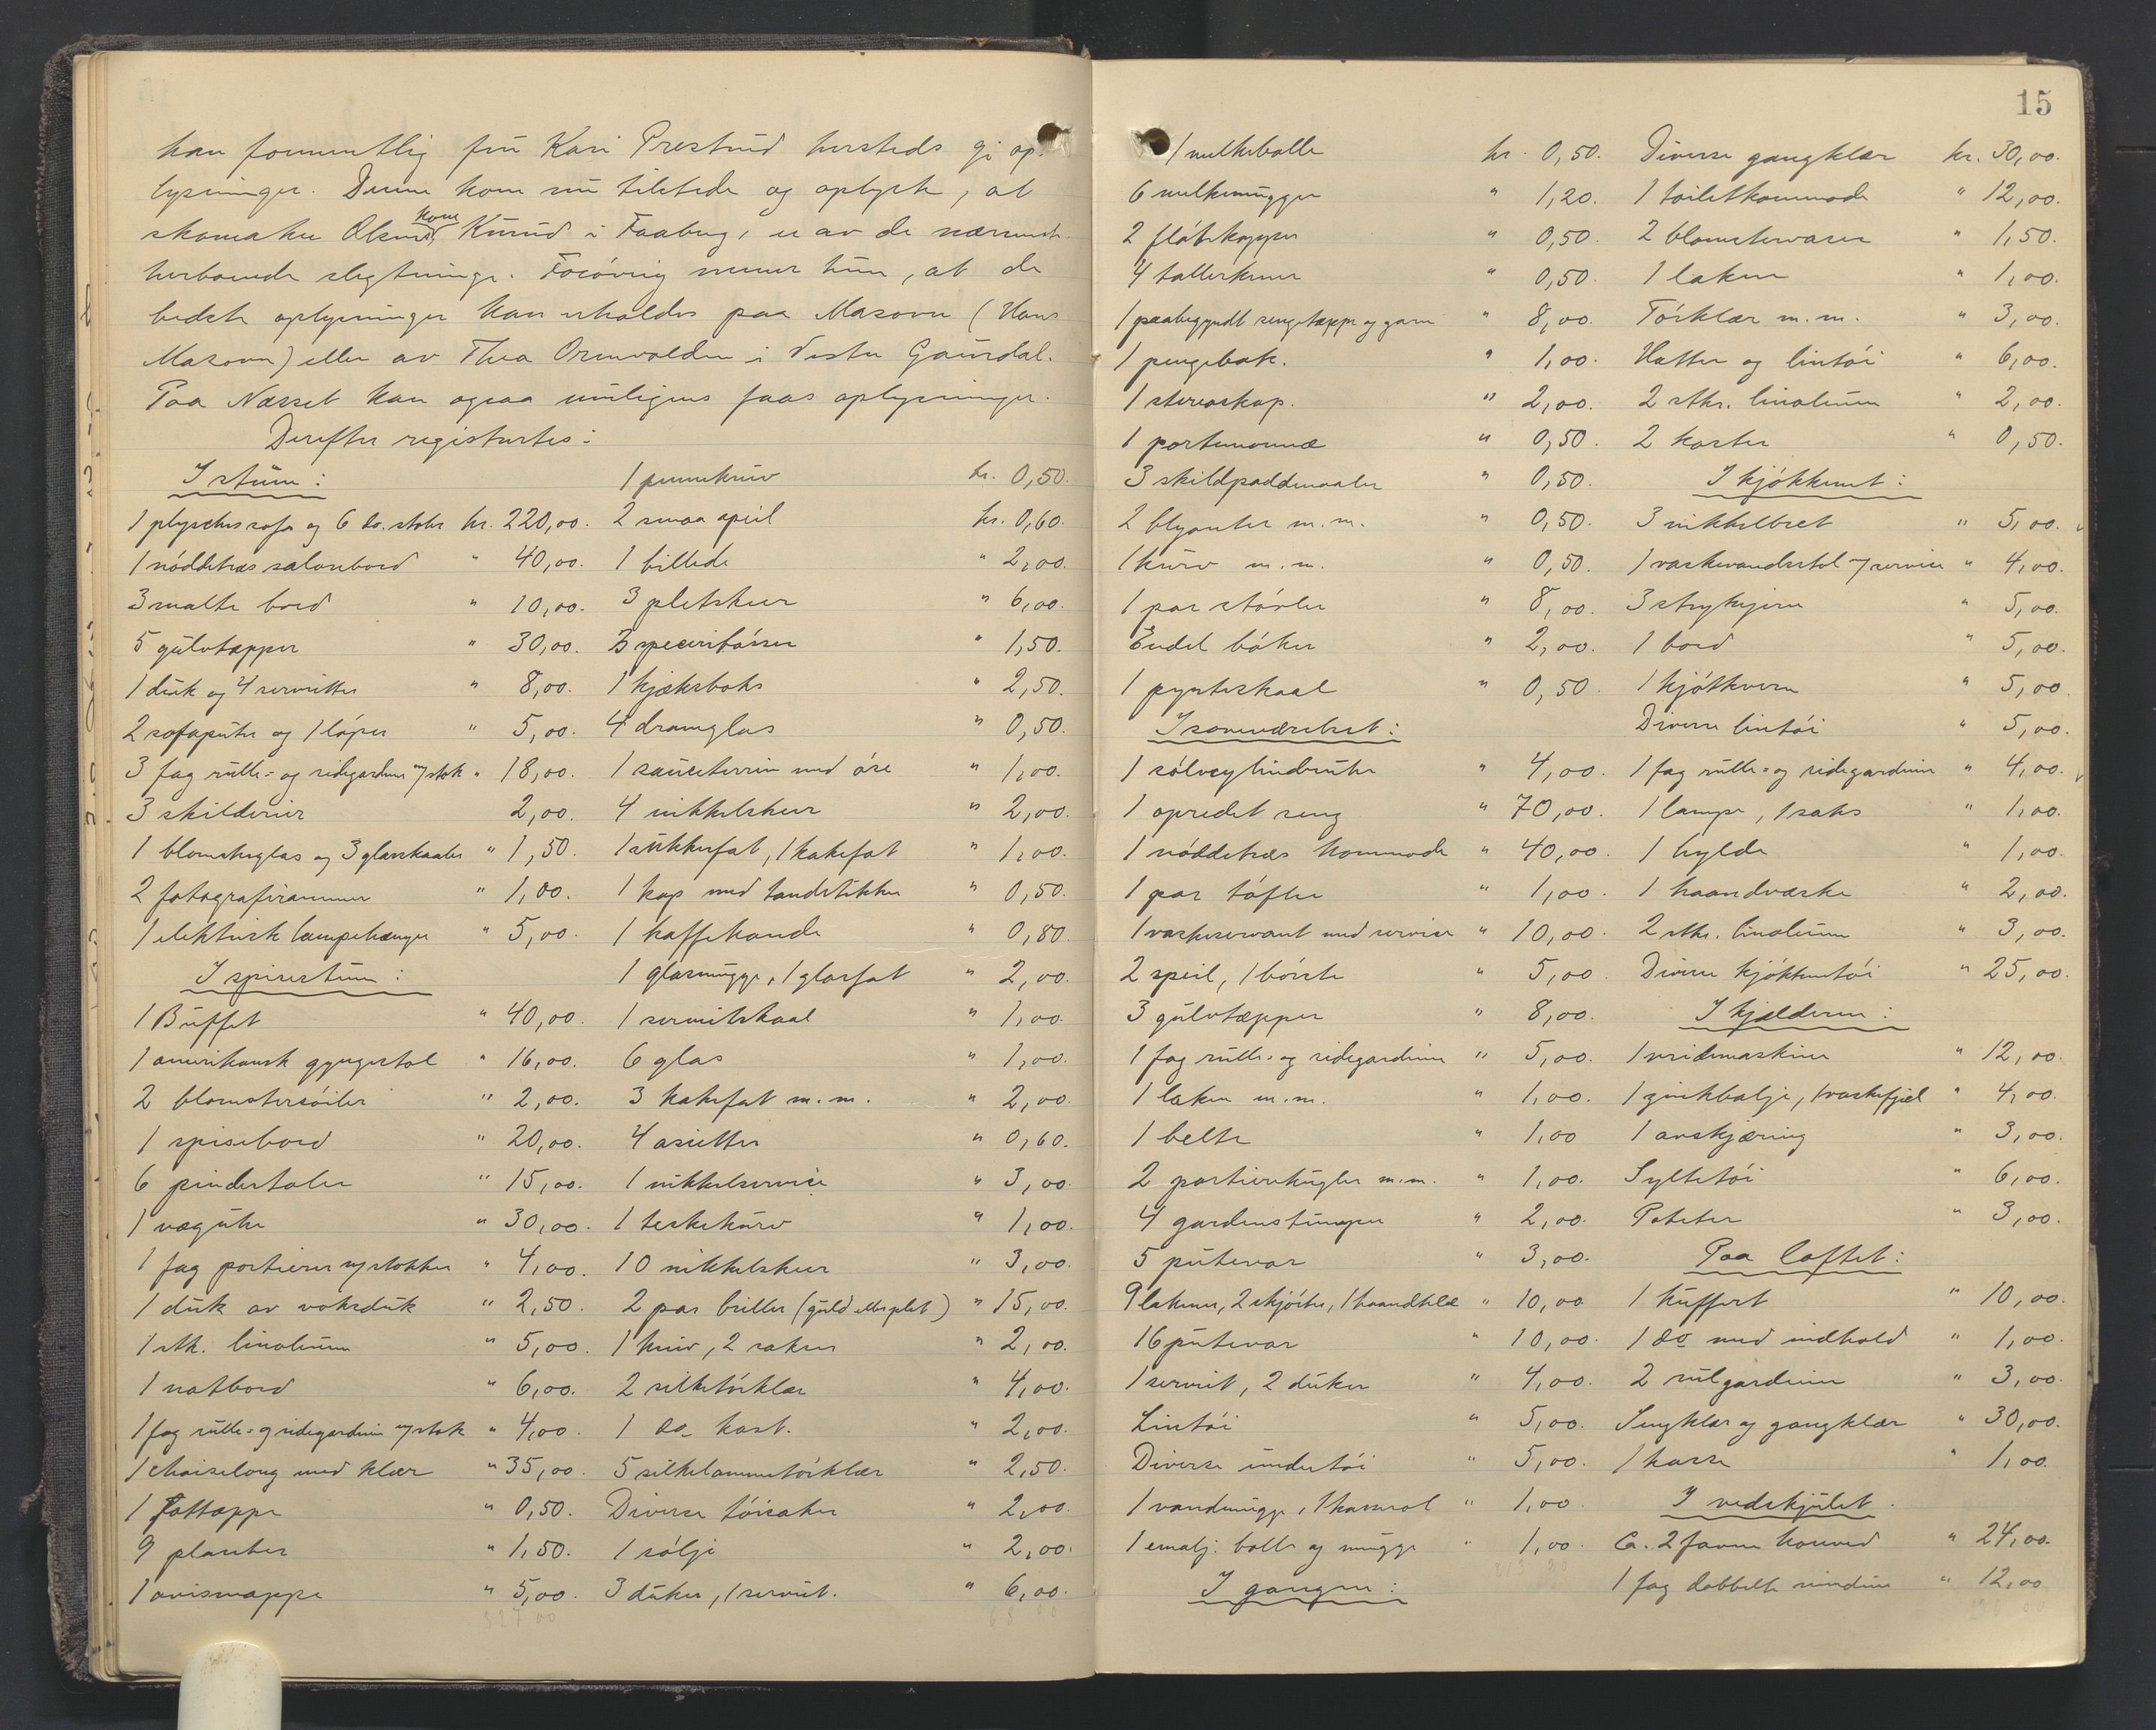 kan formentlig fru Kari Prestrud hersteds gi op-
lysninger. Denne kom nu tilstede og oplyste, at
skomaker Olsens kone Kurud i Faaberg, er av de nærmeste
herboende slegtninge. Forøvrig mener hun, at de
bedste oplysninger kan erholdes paa Masove (Hans
Masove) eller av Thea Ornvolden i Vestre Gausdal.
Paa Næsset kan ogsaa muligens faas oplysninger.
Derefter registrertes:
I stuen:
1 plyschessofa og 6 do. stoler kr. 220,00.
1 nøddetræs salonbord " 40,00.
3 malte bord " 10,00.
5 gulvtepper " 30,00.
1 duk og 4 servietter " 8,00.
2 sofaputer og 1 løper " 5,00.
3 fag rulle- og sidegardiner m/stok " 18,00.
3 skilderier 2,00.
1 blomsterglas og 3 glasskaaler " 1,50.
2 fotografirammer " 1,00.
1 elektrisk lampehænger " 5,00.
I spisestuen:
1 Buffet " 40,00.
1 amerikansk gyngestol " 16,00.
2 blomstersøiler " 2,00.
1 spisebord " 20,00.
6 pindestoler " 15,00.
1 vægur " 30,00.
1 fag portierer m/stokker " 4,00.
1 duk av voksduk " 2,50.
1 stk. linoleum " 5,00.
1 natbord " 6,00.
1 fag rulle- og sidegardiner m/stok " 4,00.
1 chaiselong med klær " 35,00.
1 fotteppe " 0,50.
9 planter " 1,50.
1 avismappe " 5,00.
1 pennekniv kr. 0,50.
2 smaa speil kr. 0,60.
1 billede " 2,00.
3 pletskeer " 6,00.
3 speceribøsser " 1,50.
1 kjæksboks " 2,50.
4 dramglas " 0,50.
1 sauceterrin med øse " 1,00.
4 nikkelskeer " 2,00.
1 sukkerfat, 1 kakefat " 1,00.
1 kop med tandstikker " 0,50.
1 kaffekande " 0,80.
1 glasmugge, 1 glasfat " 2,00.
1 servietskaal " 1,00.
6 glas " 1,00.
3 kakefat m.m. " 2,00.
4 asietter " 0,60.
1 nikkelservice " 3,00.
1 teskekurv " 1,00.
10 nikkelskeer " 3,00.
2 par briller (guld eller plet) " 15,00.
1 kniv, 2 sakser " 2,00.
2 silketørklær " 4,00.
1 do kast. " 2,00.
5 silkelommetørklær " 2,50.
Diverse tøisaker " 2,00.
1 sølje " 2,00.
3 duker, 1 serviet. " 6,00.
15
1 melkebolle kr. 0,50.
6 melkemugger " 1,20.
2 fløtekopper " 0,50.
4 tallerkener " 0,50.
1 paabegyndt sengeteppe og garn " 8,00.
1 pengebok. " 1,00.
1 stereoskop. " 2,00.
1 portemonnæ " 0,50.
3 skildpaddenaaler " 0,50.
2 blyanter m.m. " 0,50.
1 kurv m.m. " 0,50.
1 par støvler " 8,00.
Endel bøker " 2,00.
1 pynteskaal " 0,50.
I soveværelset:
1 sølvcylinderuhr " 4,00.
1 opredet seng " 70,00.
1 nøddetræs kommode " 40,00.
1 par tøfler " 1,00.
1 vaskeservant med service " 10,00.
2 speil, 1 børste " 5,00.
3 gulvtæpper " 8,00.
1 fag rulle- og sidegardiner " 5,00.
1 laken m.m. " 1,00.
1 belte " 1,00
2 portierekugler m.m. " 1,00.
4 gardinstumper " 2,00.
5 putevar " 3,00.
9 lakener, 2 skjørter, 1 haandklæ " 10,00.
16 putevar " 10,00.
1 serviet, 2 duker " 4,00.
Lintøi " 5,00.
Diverse undertøi " 5,00.
1 vandmugge, 1 kasserol " 1,00.
1 emalj. bolle og mugge " 1,00.
I gangen:
Diverse gangklær kr. 30,00.
1 toiletkommode " 12,00.
2 blomstervaser " 1,50.
1 laken " 1,00.
Tørklær m.m. " 3,00.
Hatter og lintøi " 6,00.
2 stkr. linoleum " 2,00.
2 koster " 0,50.
I kjøkkenet:
3 nikkelbret " 5,00.
1 vaskevandsstol m/ service " 4,00.
3 strykejern " 5,00.
1 bord " 5,00.
1 kjøtkvern " 5,00.
Diverse lintøi " 5,00.
1 fag rulle- og sidegardiner " 4,00.
1 lampe, 1 saks " 1,00.
1 hylde " 1,00.
1 haandvæske " 2,00.
2 stkr. linoleum " 3,00.
Diverse kjøkkentøi " 25,00.
I kjelderen:
1 vridemaskine " 12,00.
1 zinkbalje, 1 vaskefjel " 4,00.
1 anskjæring " 3,00.
Syltetøi " 6,00.
Poteter " 3,00.
Paa loftet:
1 kuffert " 10,00.
1 do med indhold " 1,00.
2 rulgardiner " 3,00.
Sengklær og gangklær " 30,00.
1 kasse " 1,00.
I vedskjulet.
Ca. 2 favner kouved " 24,00.
1 fag dobbelte vinduer " 12,00